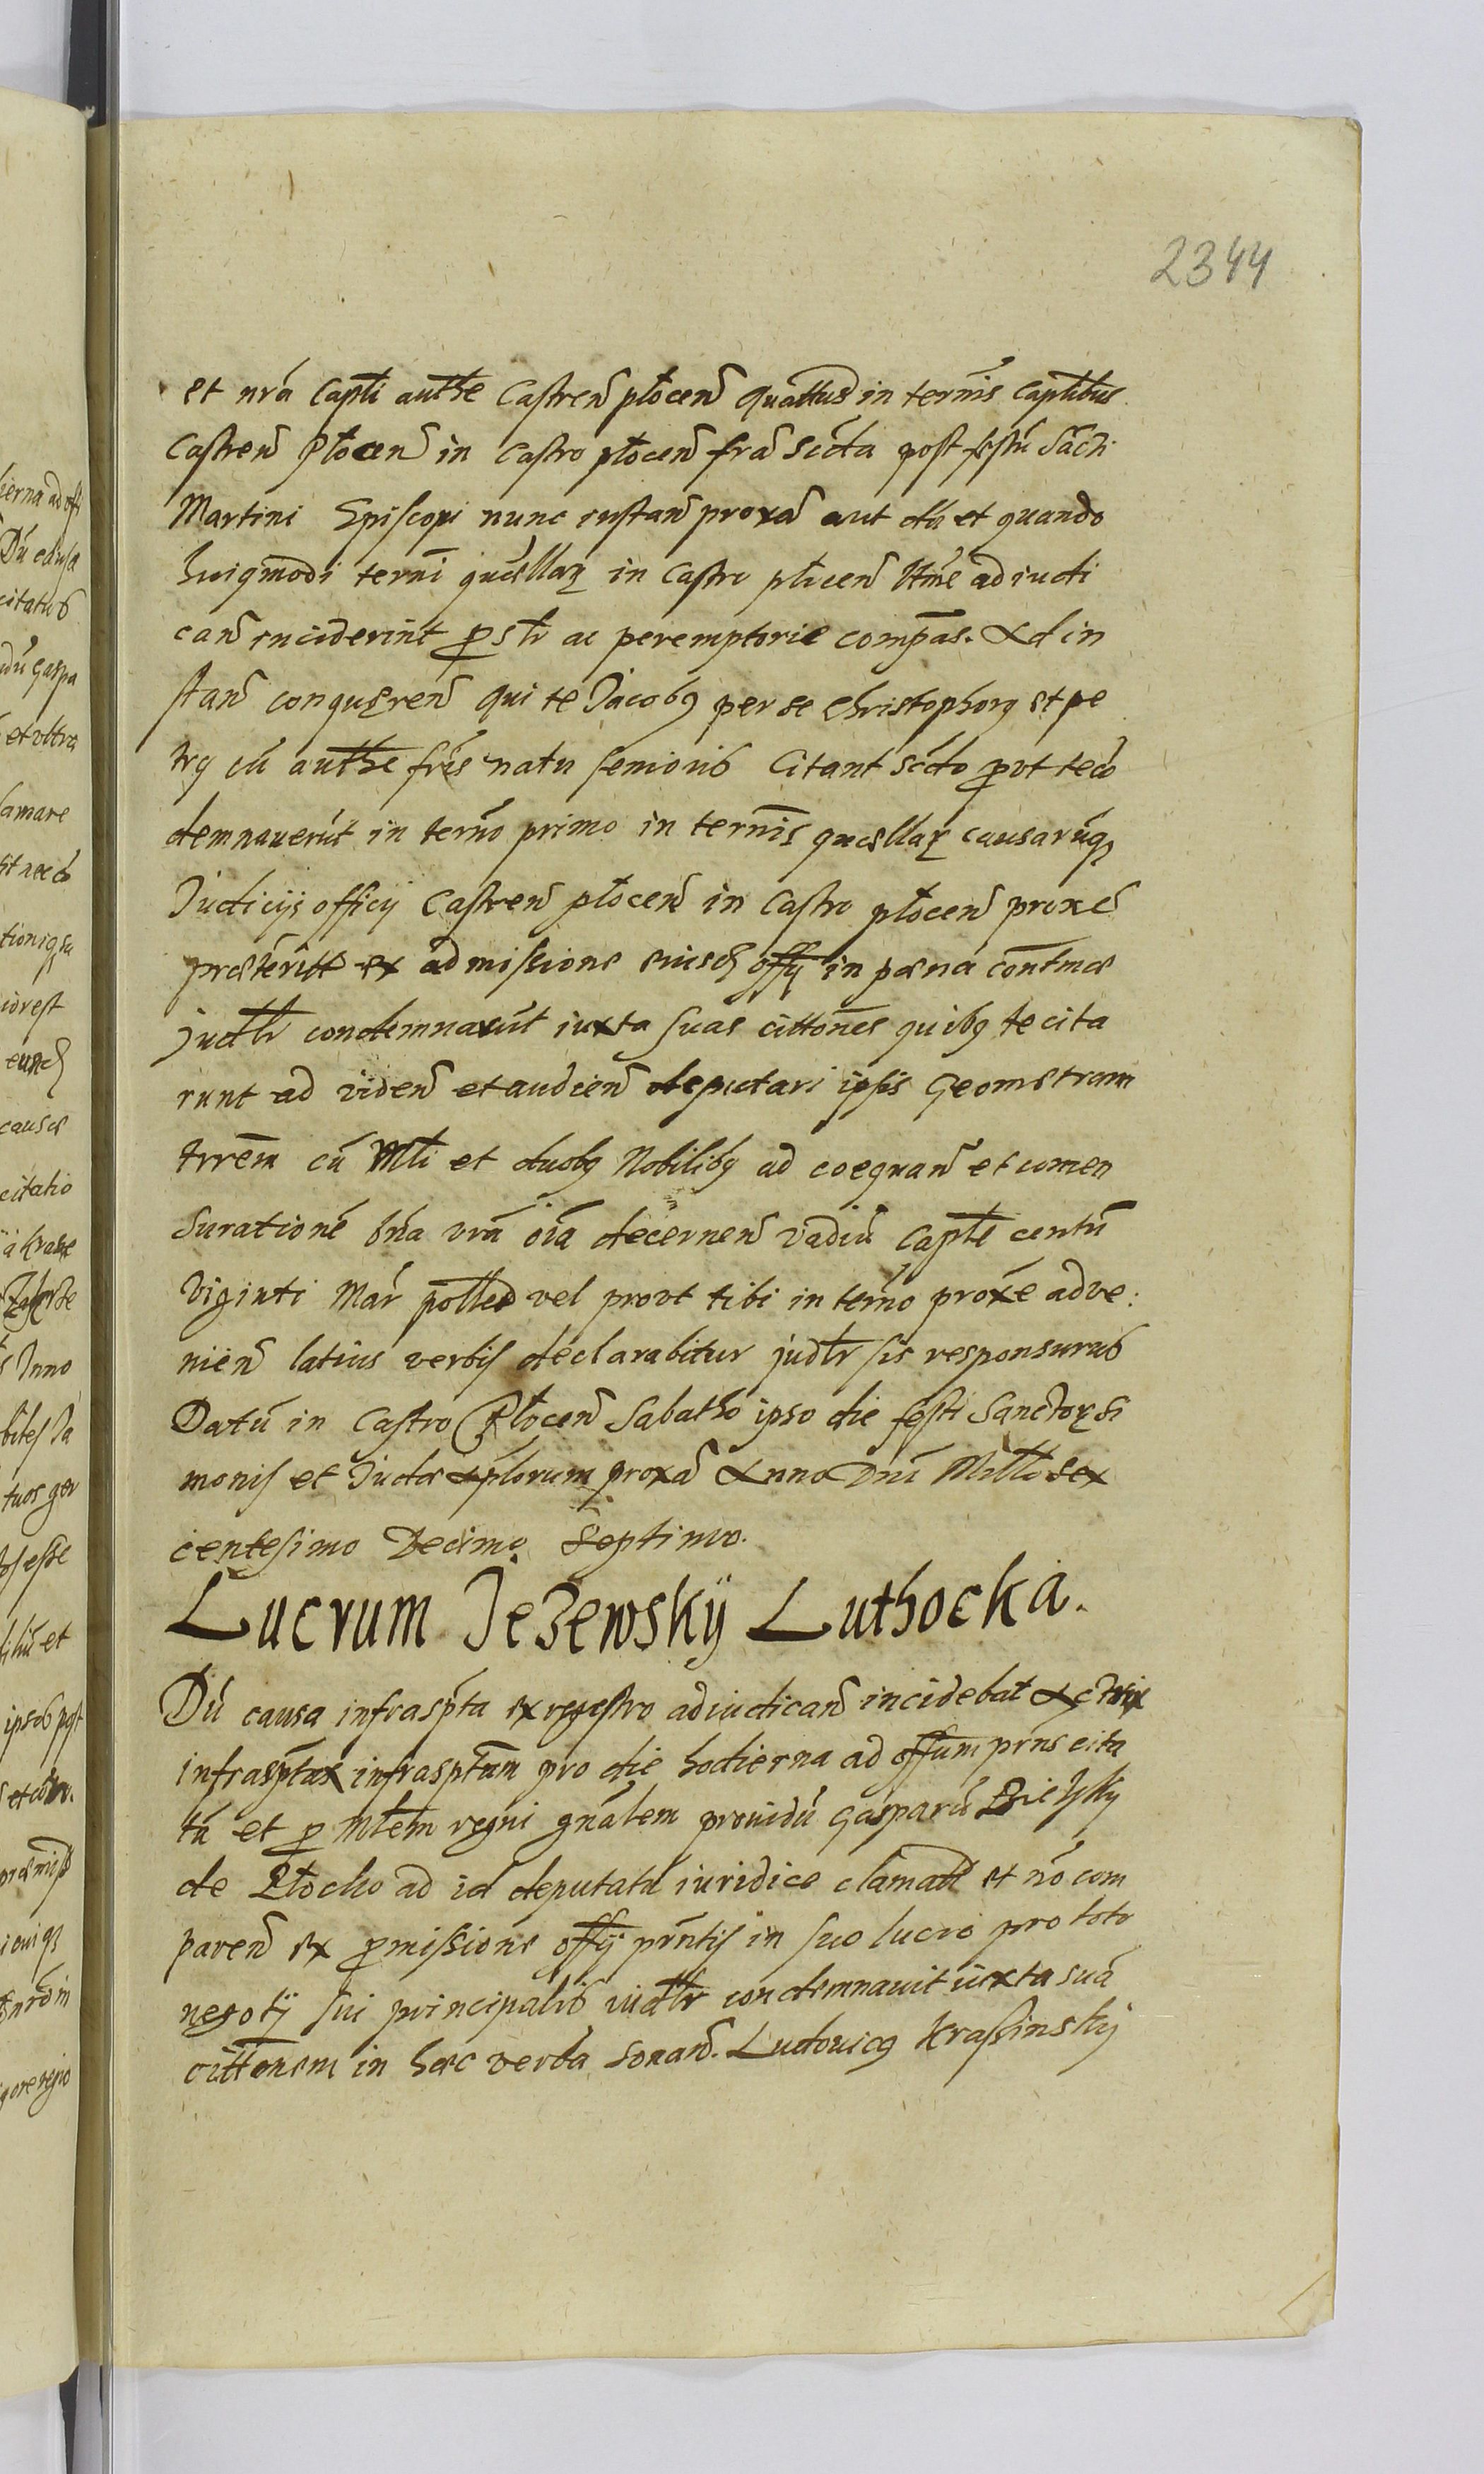 2344
et nrá Captli autthe Castren płocen quattus in termis Captlibus
Castren Płocen in Castro płocen fra Scda post festũ Sacti
Martini Episcopi nunc instan proxa aut dũ et quando
huigmodi termi quellaꝝ in Castro płocen ltme adiudi
can inciderint p str ac peremptorie compas. Ad in
stan conqueren qui te Jacobꝰ per se Christophorꝰ et pe
trꝰ cũ autthe fris natu senioris Citant scdo put te co
demnauerũt in termo primo in termis quellaꝝ causarũqꝫ
Judicijs officij Castren płocen in Castro płocen proxe
præteritt ex admissione eiusd offij in pæna contmae
judtr condemnarũt iuxta suas cittones quibꝰ te cita
runt ad viden et audien deputari ipsis Geometram
trrem cũ Mli et duobꝰ Nobilibꝰ ad coequan et comen
surationé bna vra oia decernen vadiũ Captle centũ
viginti Mar polled vel provt tibi in termo proxe adve:
nien latius verbis declarabitur judtr sis responsurus
Datũ in Castro Płocen Sabatho ipso die festi Sanctoꝝ Si
monis et Judæ Aplorum proxa Anno Dni Millo sex
centesimo Decimo Septimo.
Lucrum Jezewskÿ Luthocka.
Dũ causa infraspta ex regestro adiudican incidebat Actrix
infrasptax infrasptam pro die hodierna ad offum prns cita
tũ et p Mlem regni gnalem prouidũ Gasparũ Bielsky
de Płocko ad id deputatũ iuridice clamatt et nõ com
paren ex pmissione offij prntis in suo lucro pro toto
negotij sui principalis iudtr condemnauit iuxta suá
cittonem in hæc verba sonan. Ludouicꝰ Krassinskij